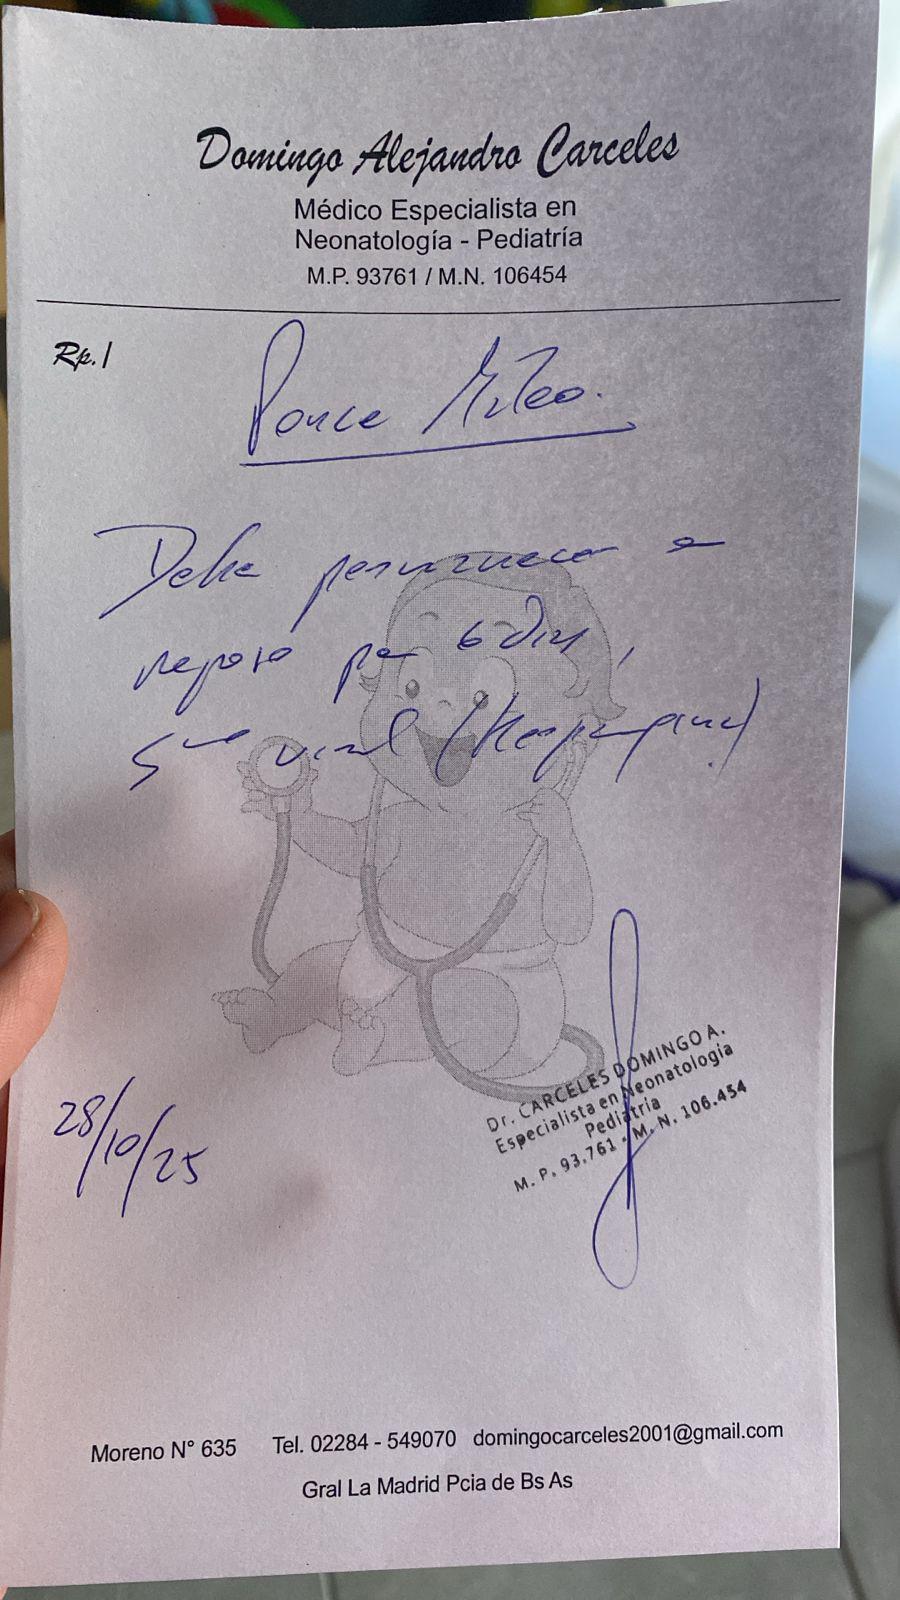 Domingo Alejandro Carceles
Médico Especialista en
Neonatología - Pediatría
M.P. 93761 / M.N. 106454
Rp./
Ponce Mateo.
Debe permanecer en
reposo por 6 dias,
viral (Herpangina)
Dr. CARCELES DOMINGO A.
Especialista en Neonatología
Pediatría
M. P. 93.761 - M. N. 106.454
28/10/25
Moreno N° 635 Tel. 02284 - 549070 domingocarceles2001@gmail.com
Gral La Madrid Pcia de Bs As